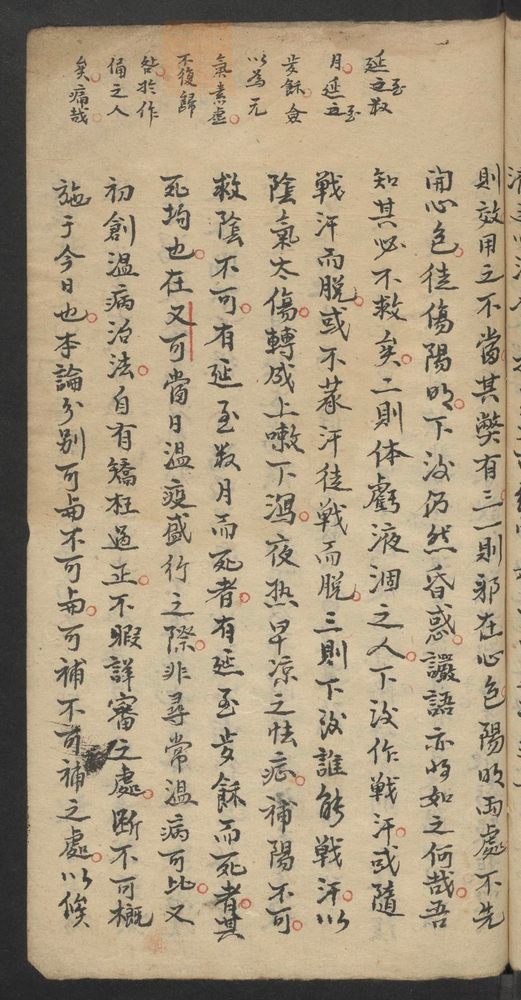 延至之数
月。延至之
岁馀。佥
以为元
氣素虚。
不復歸
咎於作
俑之人
矣。痛哉。
則效用之不當。其弊有三。一則邪在心包陽明两處。不先
開心包。徒傷陽明。下後仍然昏惑讝語。亦將如之何哉。吾
知其必不救矣。二則体虧液涸之人。下後作戰汗。或隨
戰汗而脱。或不蒸汗徒戰而脱。三則下後誰能戰汗。以
陰氣太傷。轉成上嗽下瀉。夜热早凉之怯症。補陽不可。
救陰不可。有延至数月而死者。有延至岁餘而死者。其
死均也。在又可當日温疫盛行之際。非尋常温病可比。又
初創温病治法。自有矯枉過正。不暇詳審之處。断不可概
施于今日也。本論分别可與不可與。可補不可補之處。以俟